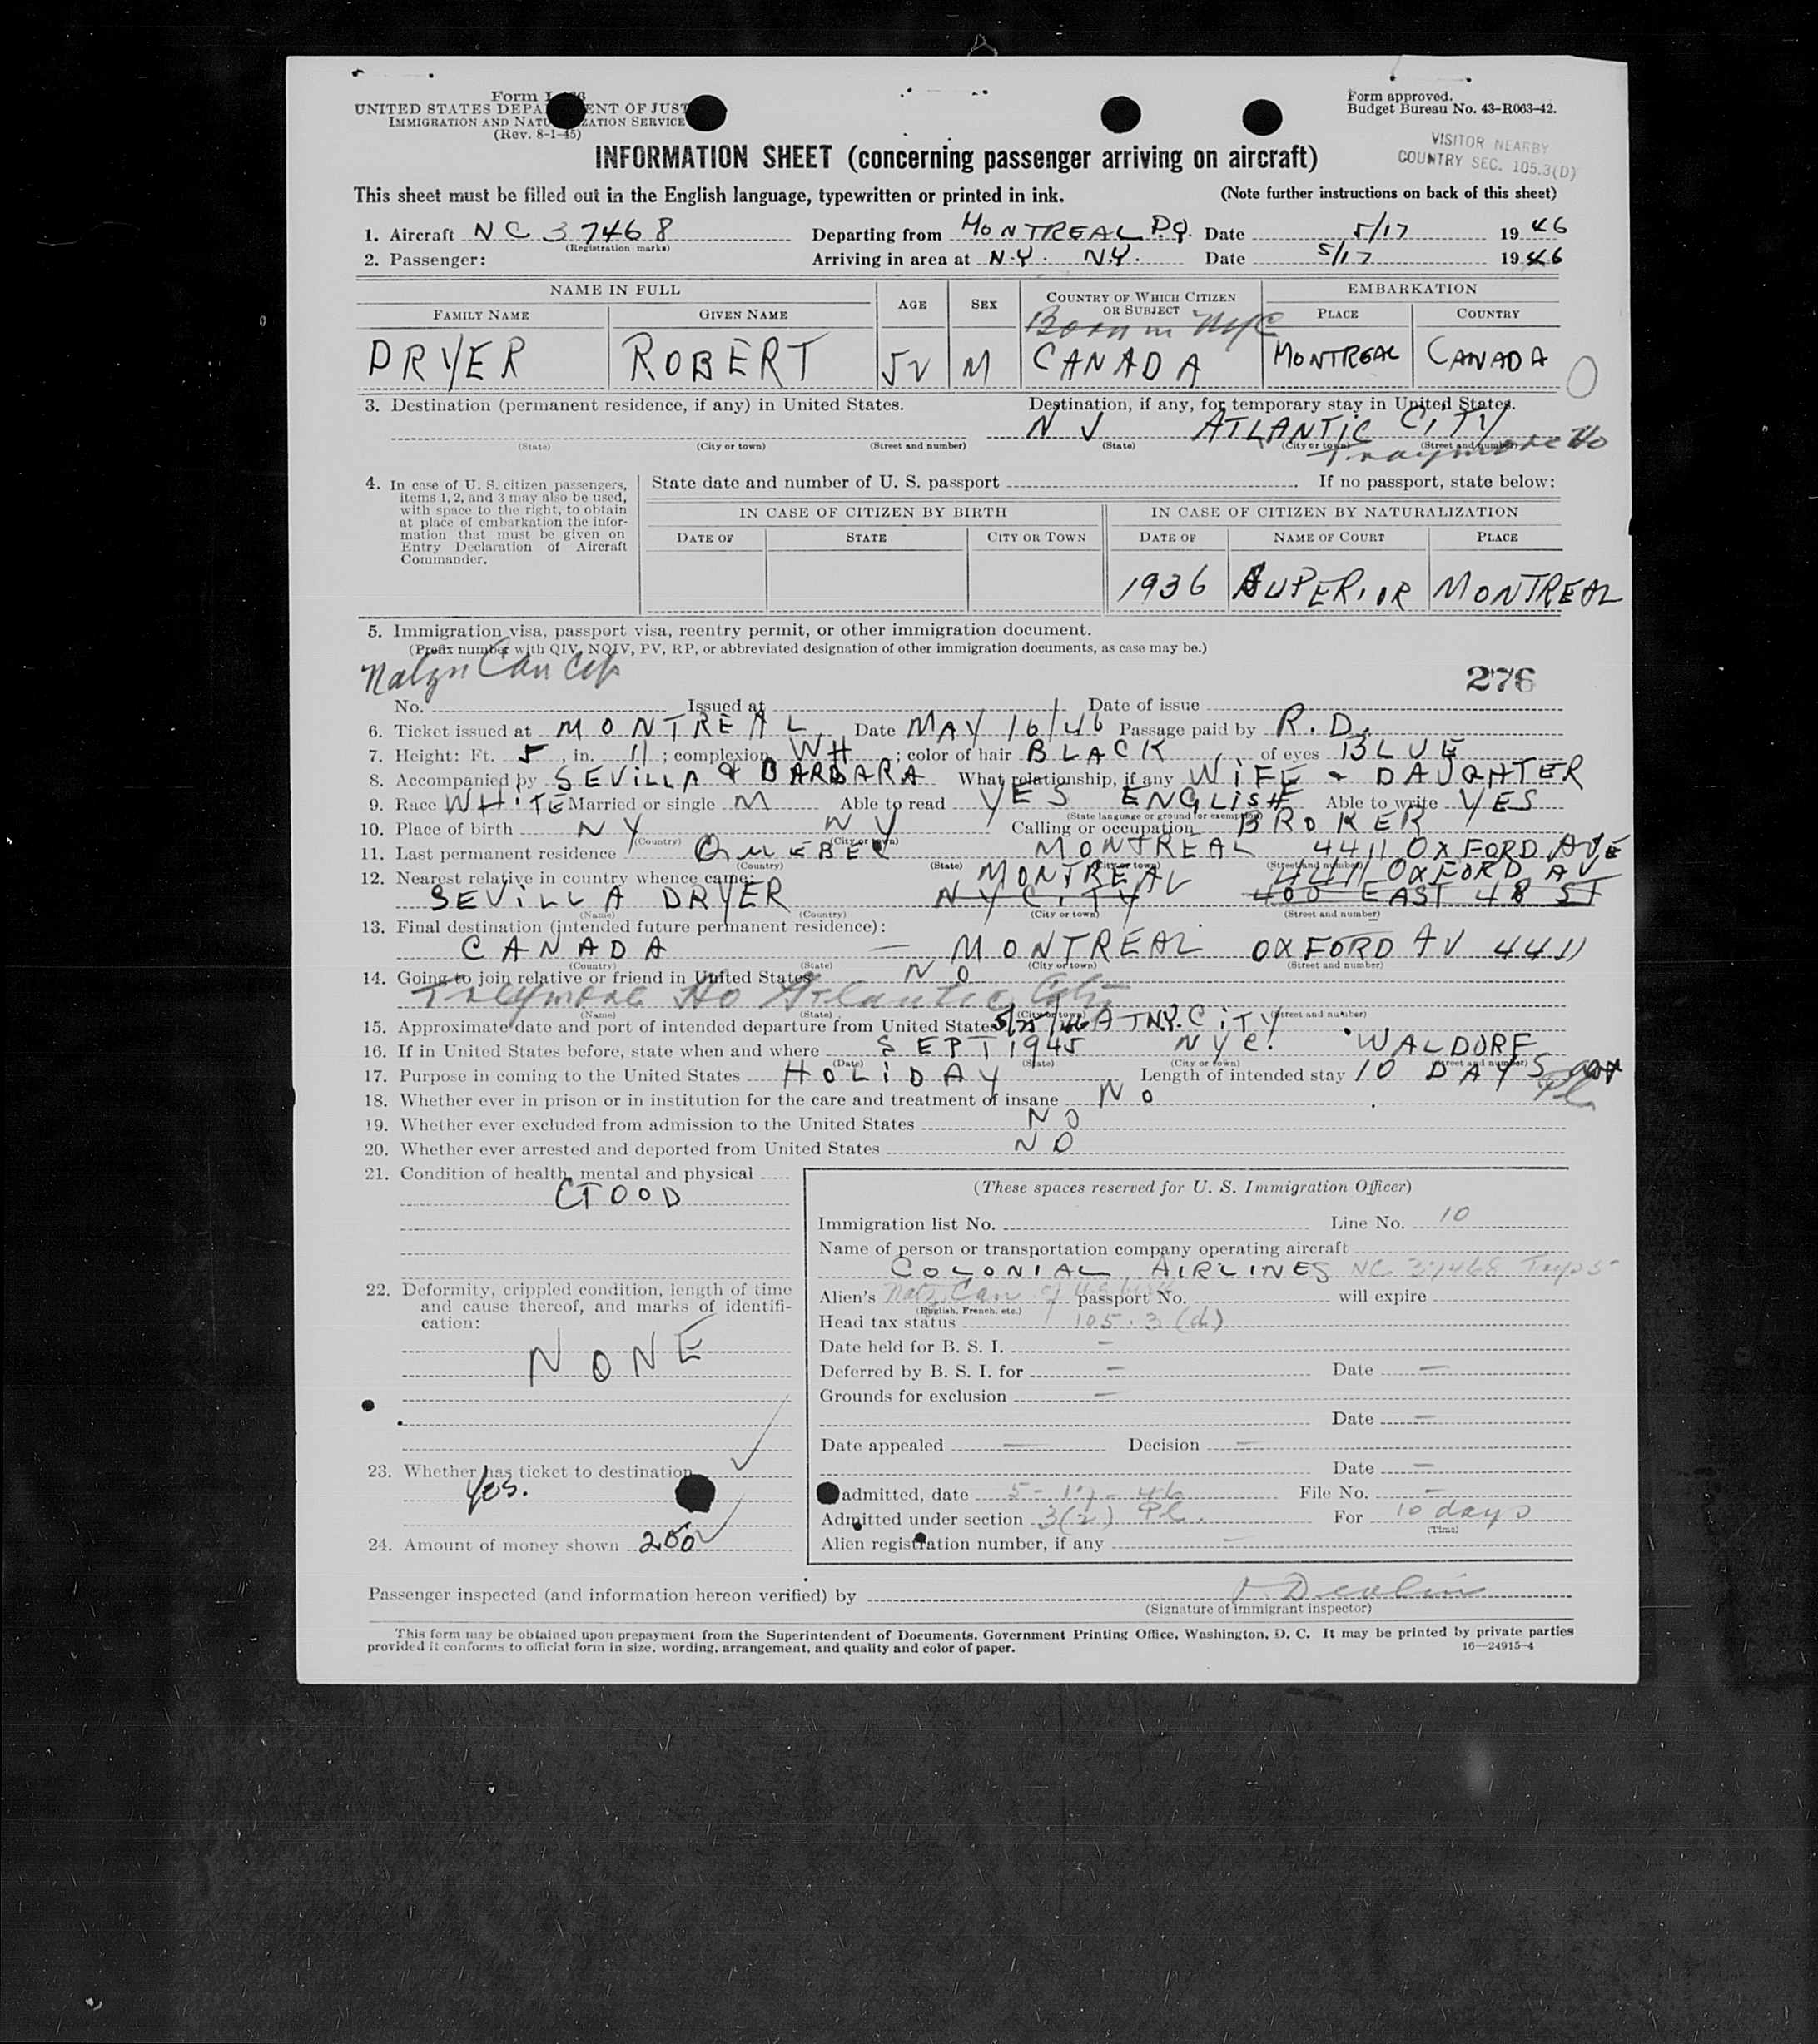 Form I-466
UNITED STATES DEPARTMENT OF JUSTICE
IMMIGRATION AND NATURALIZATION SERVICE
(Rev. 8-1-45)
Form approved.
Budget Bureau No. 43-R063-42.
VISITOR NEARBY
COUNTRY SEC. 105.3(D)
INFORMATION SHEET (concerning passenger arriving on aircraft)
This sheet must be filled out in the English language, typewritten or printed in ink. (Note further instructions on back of this sheet)
1. Aircraft NC 37468 Departing from MONTREAL P.Q. Date 5/17 1946
(Registration marks)
2. Passenger: Arriving in area at N.Y. N.Y. Date 5/17 1946
NAME IN FULL AGE SEX COUNTRY OF WHICH CITIZEN OR SUBJECT EMBARKATION
FAMILY NAME GIVEN NAME PLACE COUNTRY
Born in NYC
DRYER ROBERT 52 M CANADA MONTREAL CANADA 0
3. Destination (permanent residence, if any) in United States. Destination, if any, for temporary stay in United States.
N J ATLANTIC CITY
(State) (City or town) (Street and number) (State) (City or town) (Street and number)
Traymore Ho
4. In case of U. S. citizen passengers, items 1, 2, and 3 may also be used, with space to the right, to obtain at place of embarkation the information that must be given on Entry Declaration of Aircraft Commander.
State date and number of U. S. passport If no passport, state below:
IN CASE OF CITIZEN BY BIRTH IN CASE OF CITIZEN BY NATURALIZATION
DATE OF STATE CITY OR TOWN DATE OF NAME OF COURT PLACE
1936 SUPERIOR MONTREAL
5. Immigration visa, passport visa, reentry permit, or other immigration document.
(Prefix number with QIV, NQIV, PV, RP, or abbreviated designation of other immigration documents, as case may be.)
276
No. Issued at Date of issue
6. Ticket issued at MONTREAL Date MAY 16/46 Passage paid by R.D.
7. Height: Ft. 5, in. 11; complexion WH; color of hair BLACK, of eyes BLUE
8. Accompanied by SEVILLA & BARBARA What relationship, if any WIFE & DAUGHTER
9. Race WHITE Married or single M Able to read YES ENGLISH Able to write YES
(State language or ground for exemption)
10. Place of birth NY NY Calling or occupation BROKER
(Country) (City or town)
11. Last permanent residence QUEBEC MONTREAL 4411 OXFORD AVE
(Country) (State) (City or town) (Street and number)
12. Nearest relative in country whence came: MONTREAL 4411 OXFORD AV
SEVILLA DRYER NY CITY 400 EAST 48 ST
(Name) (Country) (City or town) (Street and number)
13. Final destination (intended future permanent residence):
CANADA — MONTREAL OXFORD AV 4411
(Country) (State) (City or town) (Street and number)
14. Going to join relative or friend in United States NO
Traymore Ho Atlantic City
(Name) (State) (City or town) (Street and number)
15. Approximate date and port of intended departure from United States 5/25/46 AT N.Y. CITY
16. If in United States before, state when and where SEPT 1945 NYC. WALDORF
(Date) (State) (City or town) (Street and number)
17. Purpose in coming to the United States HOLIDAY Length of intended stay 10 DAYS
18. Whether ever in prison or in institution for the care and treatment of insane NO
19. Whether ever excluded from admission to the United States NO
20. Whether ever arrested and deported from United States NO
21. Condition of health, mental and physical
GOOD
22. Deformity, crippled condition, length of time and cause thereof, and marks of identification:
NONE
23. Whether has ticket to destination
Yes.
24. Amount of money shown 200
(These spaces reserved for U. S. Immigration Officer)
Immigration list No. Line No. 10
Name of person or transportation company operating aircraft
COLONIAL AIRLINES NC 37468 Trip 5
Alien's Natz Can passport No. will expire
(English, French, etc.)
Head tax status 105.3 (d)
Date held for B. S. I. —
Deferred by B. S. I. for — Date —
Grounds for exclusion —
Date —
Date appealed — Decision —
Date —
admitted, date 5-17-46 File No. —
Admitted under section 3(2) Pl. For 10 days
(Time)
Alien registration number, if any —
Passenger inspected (and information hereon verified) by Devlin
(Signature of immigrant inspector)
This form may be obtained upon prepayment from the Superintendent of Documents, Government Printing Office, Washington, D. C. It may be printed by private parties
provided it conforms to official form in size, wording, arrangement, and quality and color of paper. 16—24915-4